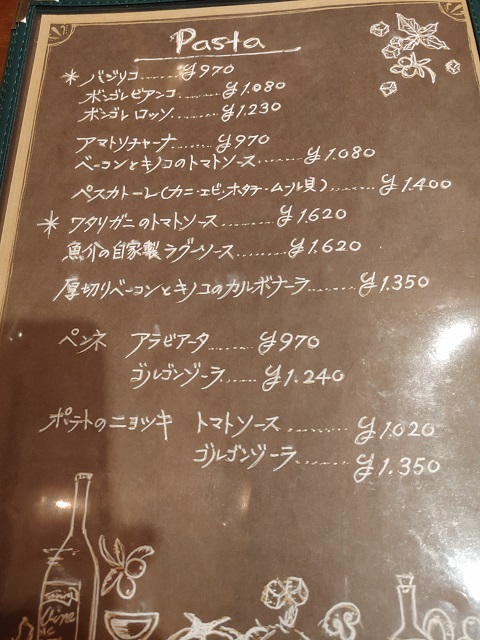 Pasta
* バジリコ……¥970
ボンゴレビアンコ……¥1.080
ボンゴレ ロッソ……¥1.230
アマトリチャーナ……¥970
ベーコンとキノコのトマトソース……¥1.080
ペスカトーレ(カニ・エビ・ホタテ・ムール貝)……¥1.400
* ワタリガニのトマトソース………¥1.620
魚介の自家製ラグーソース………¥1.620
厚切りベーコンとキノコのカルボナーラ………¥1.350
ペンネ アラビアータ………¥970
ゴルゴンゾーラ……¥1.240
ポテトのニョッキ トマトソース………¥1.020
ゴルゴンゾーラ………¥1.350
Wine